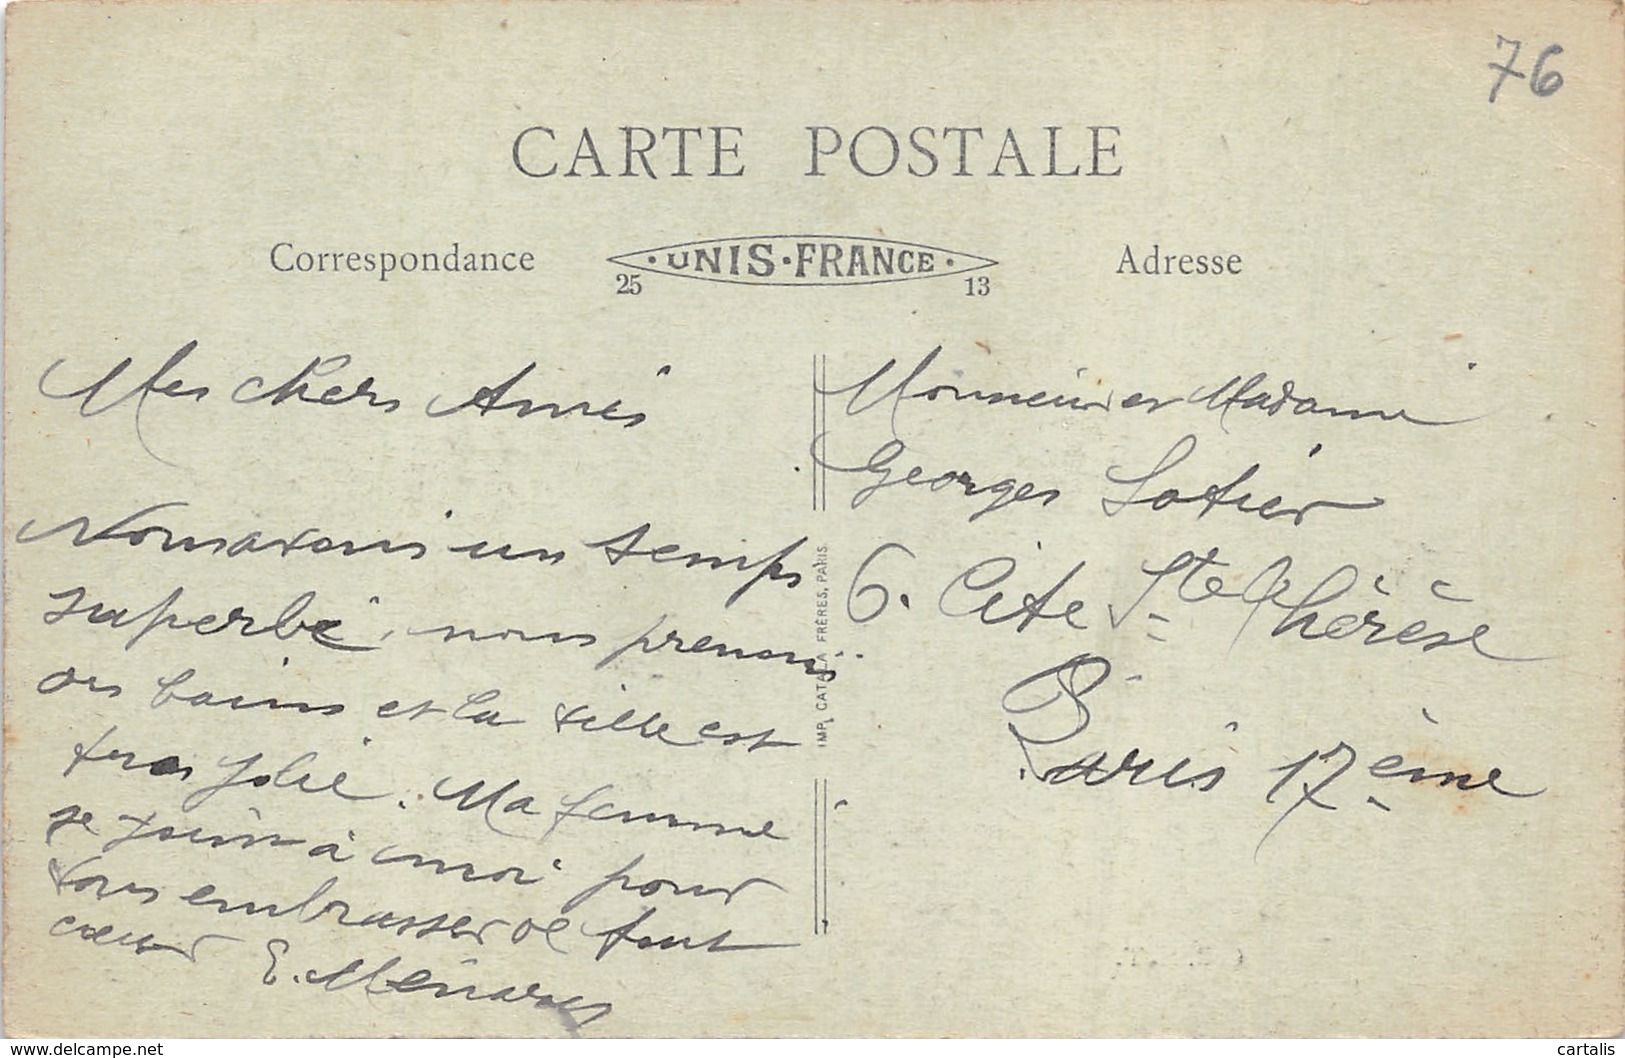 76
CARTE POSTALE
Correspondance
UNIS-FRANCE
25 13
Adresse
Mes chers Amis
Nous avons un temps
superbe, nous prenons
des bains et la ville est
très jolie. Ma femme
se joint à moi pour
vous embrasser de tout
cœur E.
Monsieur et Madame
Georges Lotier
6. Cité Ste Thérèse
Paris 17ème
IMP. CATALA FRÈRES, PARIS
www.delcampe.net
cartalis